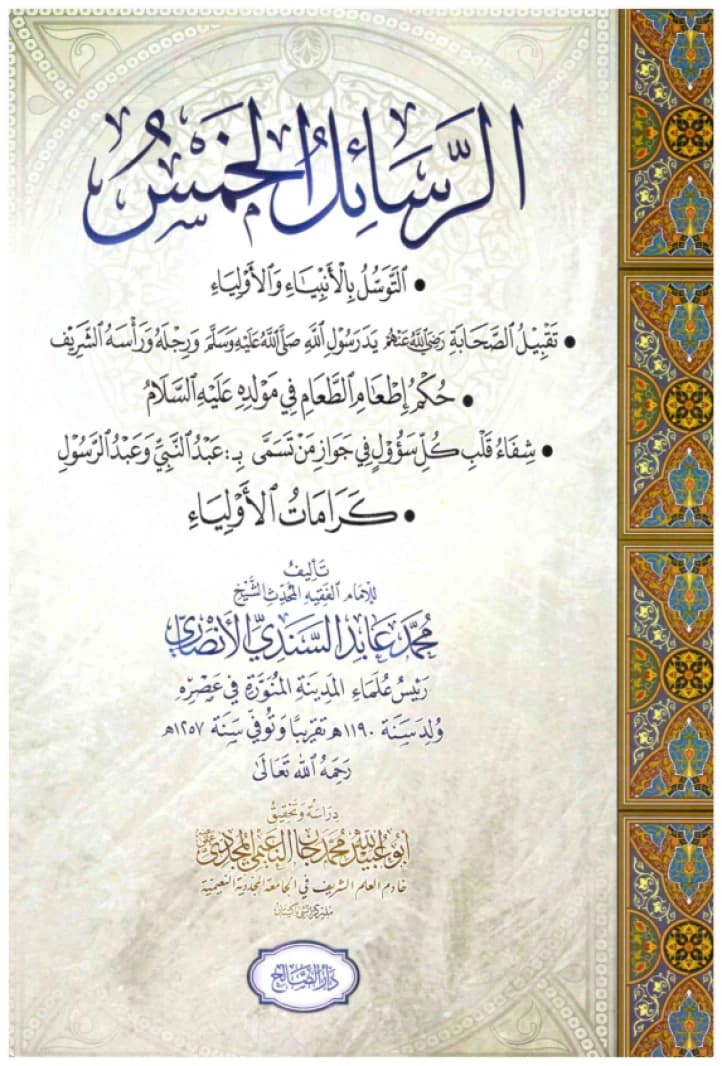 الرَّسَائِلُ الخَمْسُ
• التَّوَسُّلُ بِالْأَنْبِيَاءِ وَالْأَوْلِيَاءِ
• تَقْبِيْلُ الصَّحَابَةِ رَضِيَ اللَّهُ عَنْهُمْ يَدَ رَسُوْلِ اللَّهِ صَلَّى اللَّهُ عَلَيْهِ وَسَلَّمَ وَرِجْلَهُ وَرَأْسَهُ الشَّرِيْف
• حُكْمُ إِطْعَامِ الطَّعَامِ فِي مَوْلِدِهِ عَلَيْهِ السَّلَامُ
• شِفَاءُ قَلْبِ كُلِّ سَؤُوْلٍ فِي جَوَازِ مَنْ تَسَمَّى بِـ: عَبْدُ النَّبِيِّ وَعَبْدُ الرَّسُوْلِ
• كَرَامَاتُ الْأَوْلِيَاءِ
تَأْلِيفُ
لِلإمَامِ الفَقِيهِ المُحَدِّثِ الشَّيْخِ
مُحَمَّد عَابِد السِّنْدِيِّ الأَنْصَارِي
رَئِيسُ عُلَمَاءِ المَدِينَةِ المُنَوَّرَةِ فِي عَصْرِهِ
وُلِدَ سَنَة ١١٩٠هـ تَقْرِيبًا وَتُوفِّيَ سَنَة ١٢٥٧هـ
رَحِمَهُ اللهُ تَعَالَى
دِرَاسَة وَتَحْقِيقُ
مُحَمَّد جَان النعيمي المجددي
خادم العلم الشريف في الجامعة المجددية النعيمية
دَارُ الصَّالِح